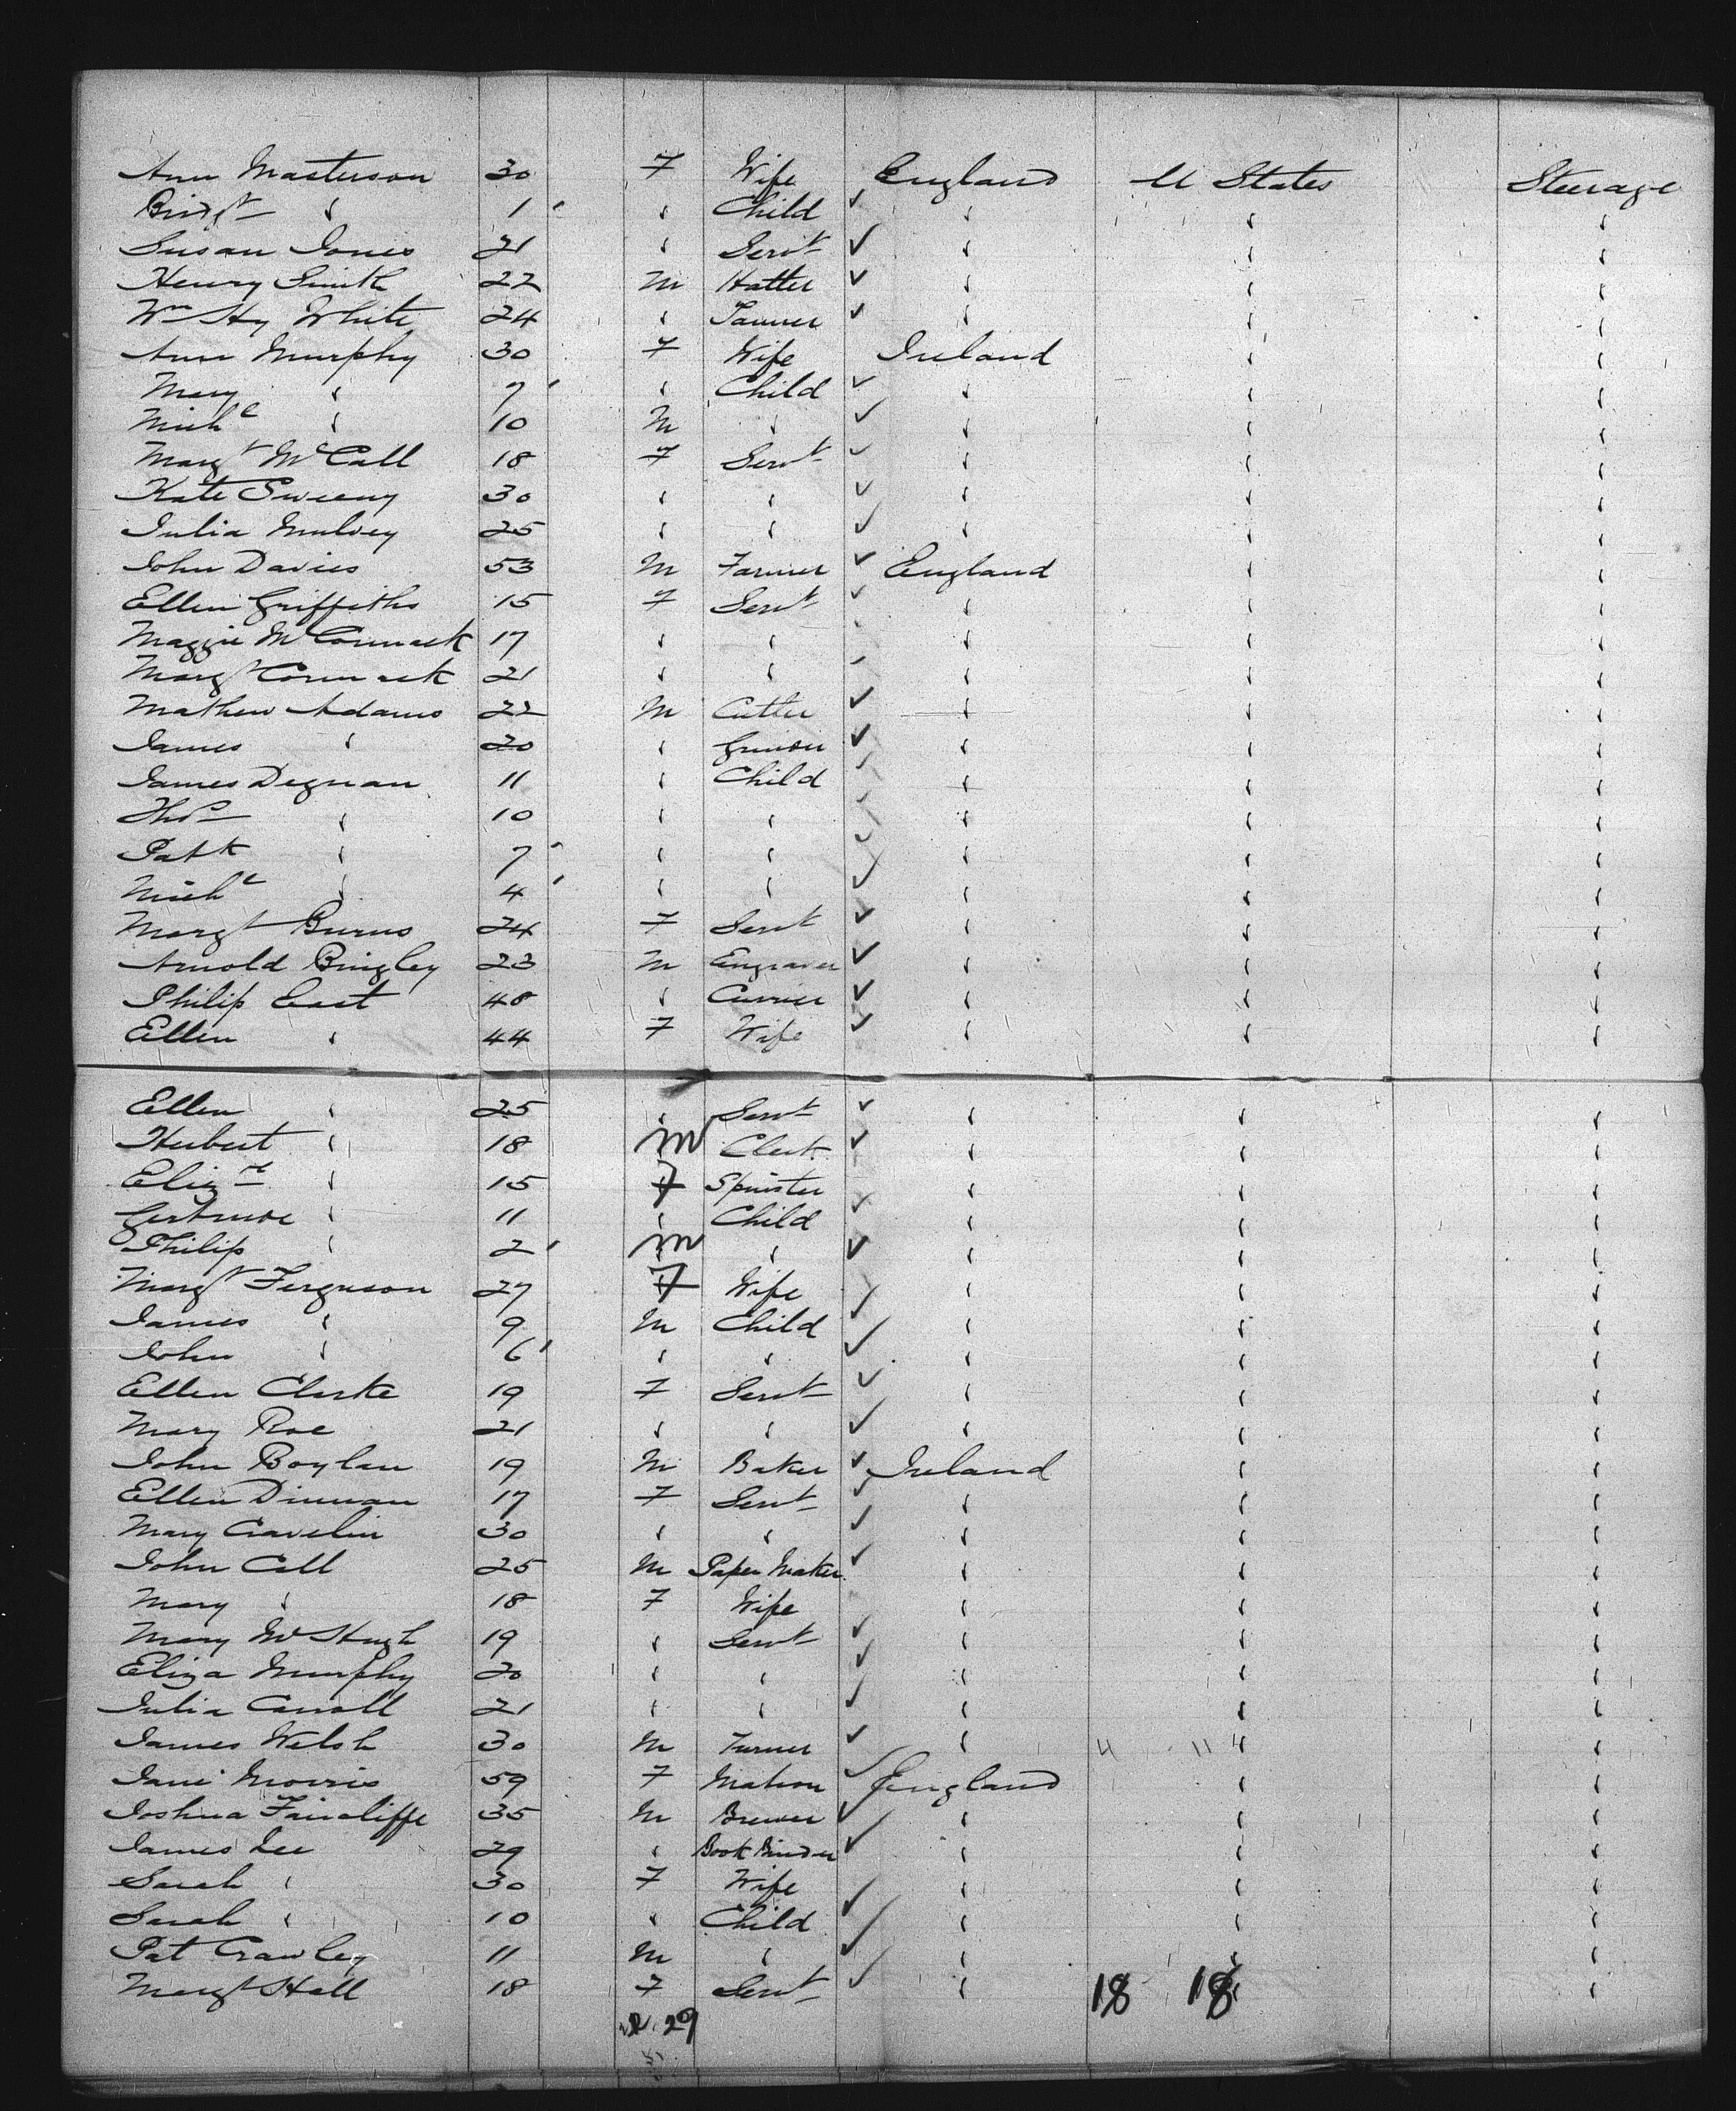 Ann Masterson 30 F Wife England U States Steerage
Bridgt " 1 " Child " " "
Susan Jones 21 " Servt " " "
Henry Smith 22 M Hatter " " "
Wm Hy White 24 " Tanner " " "
Ann Murphy 30 F Wife Ireland " "
Mary " 7 " Child " " "
Michl " 10 M " " " "
Margt McCall 18 F Servt " " "
Kate Sweeny 30 " " " " "
Julia Mulvey 25 " " " " "
John Davies 53 M Farmer England " "
Ellen Griffiths 15 F Servt " " "
Maggie McCormack 17 " " " " "
Margt Cormack 21 " " " " "
Mathew Adams 22 M Cutler " " "
James " 20 " Grinder " " "
James Degnan 11 " Child " " "
Thos " 10 " " " " "
Patk " 7 " " " " "
Michl " 4 " " " " "
Margt Burns 24 F Servt " " "
Arnold Bingley 23 M Engraver " " "
Philip East 48 " Currier " " "
Ellen " 44 F Wife " " "
Ellen " 25 " Servt " " "
Herbert " 18 M Clerk " " "
Elizth " 15 F Spinster " " "
Gertrude " 11 " Child " " "
Philip " 2 M " " " "
Margt Ferguson 27 F Wife " " "
James " 9 M Child " " "
John " 6 " " " " "
Ellen Clarke 19 F Servt " " "
Mary Roe 21 " " " " "
John Boylan 19 M Baker Ireland " "
Ellen Dinnan 17 F Servt " " "
Mary Cravelin 30 " " " " "
John Call 25 M Paper Maker " " "
Mary " 18 F Wife " " "
Mary McHugh 19 " Servt " " "
Eliza Murphy 20 " " " " "
Julia Carroll 21 " " " " "
James Welsh 30 M Turner " 4 11 4 " "
Jane Morris 59 F Matron England " "
Joshua Faircliffe 35 M Brewer " " "
James Lee 29 " Book Binder " " "
Sarah " 30 F Wife " " "
Sarah " 10 " Child " " "
Pat Crawley 11 M " " " "
Margt Hall 18 F Servt " 18 18 " "
29